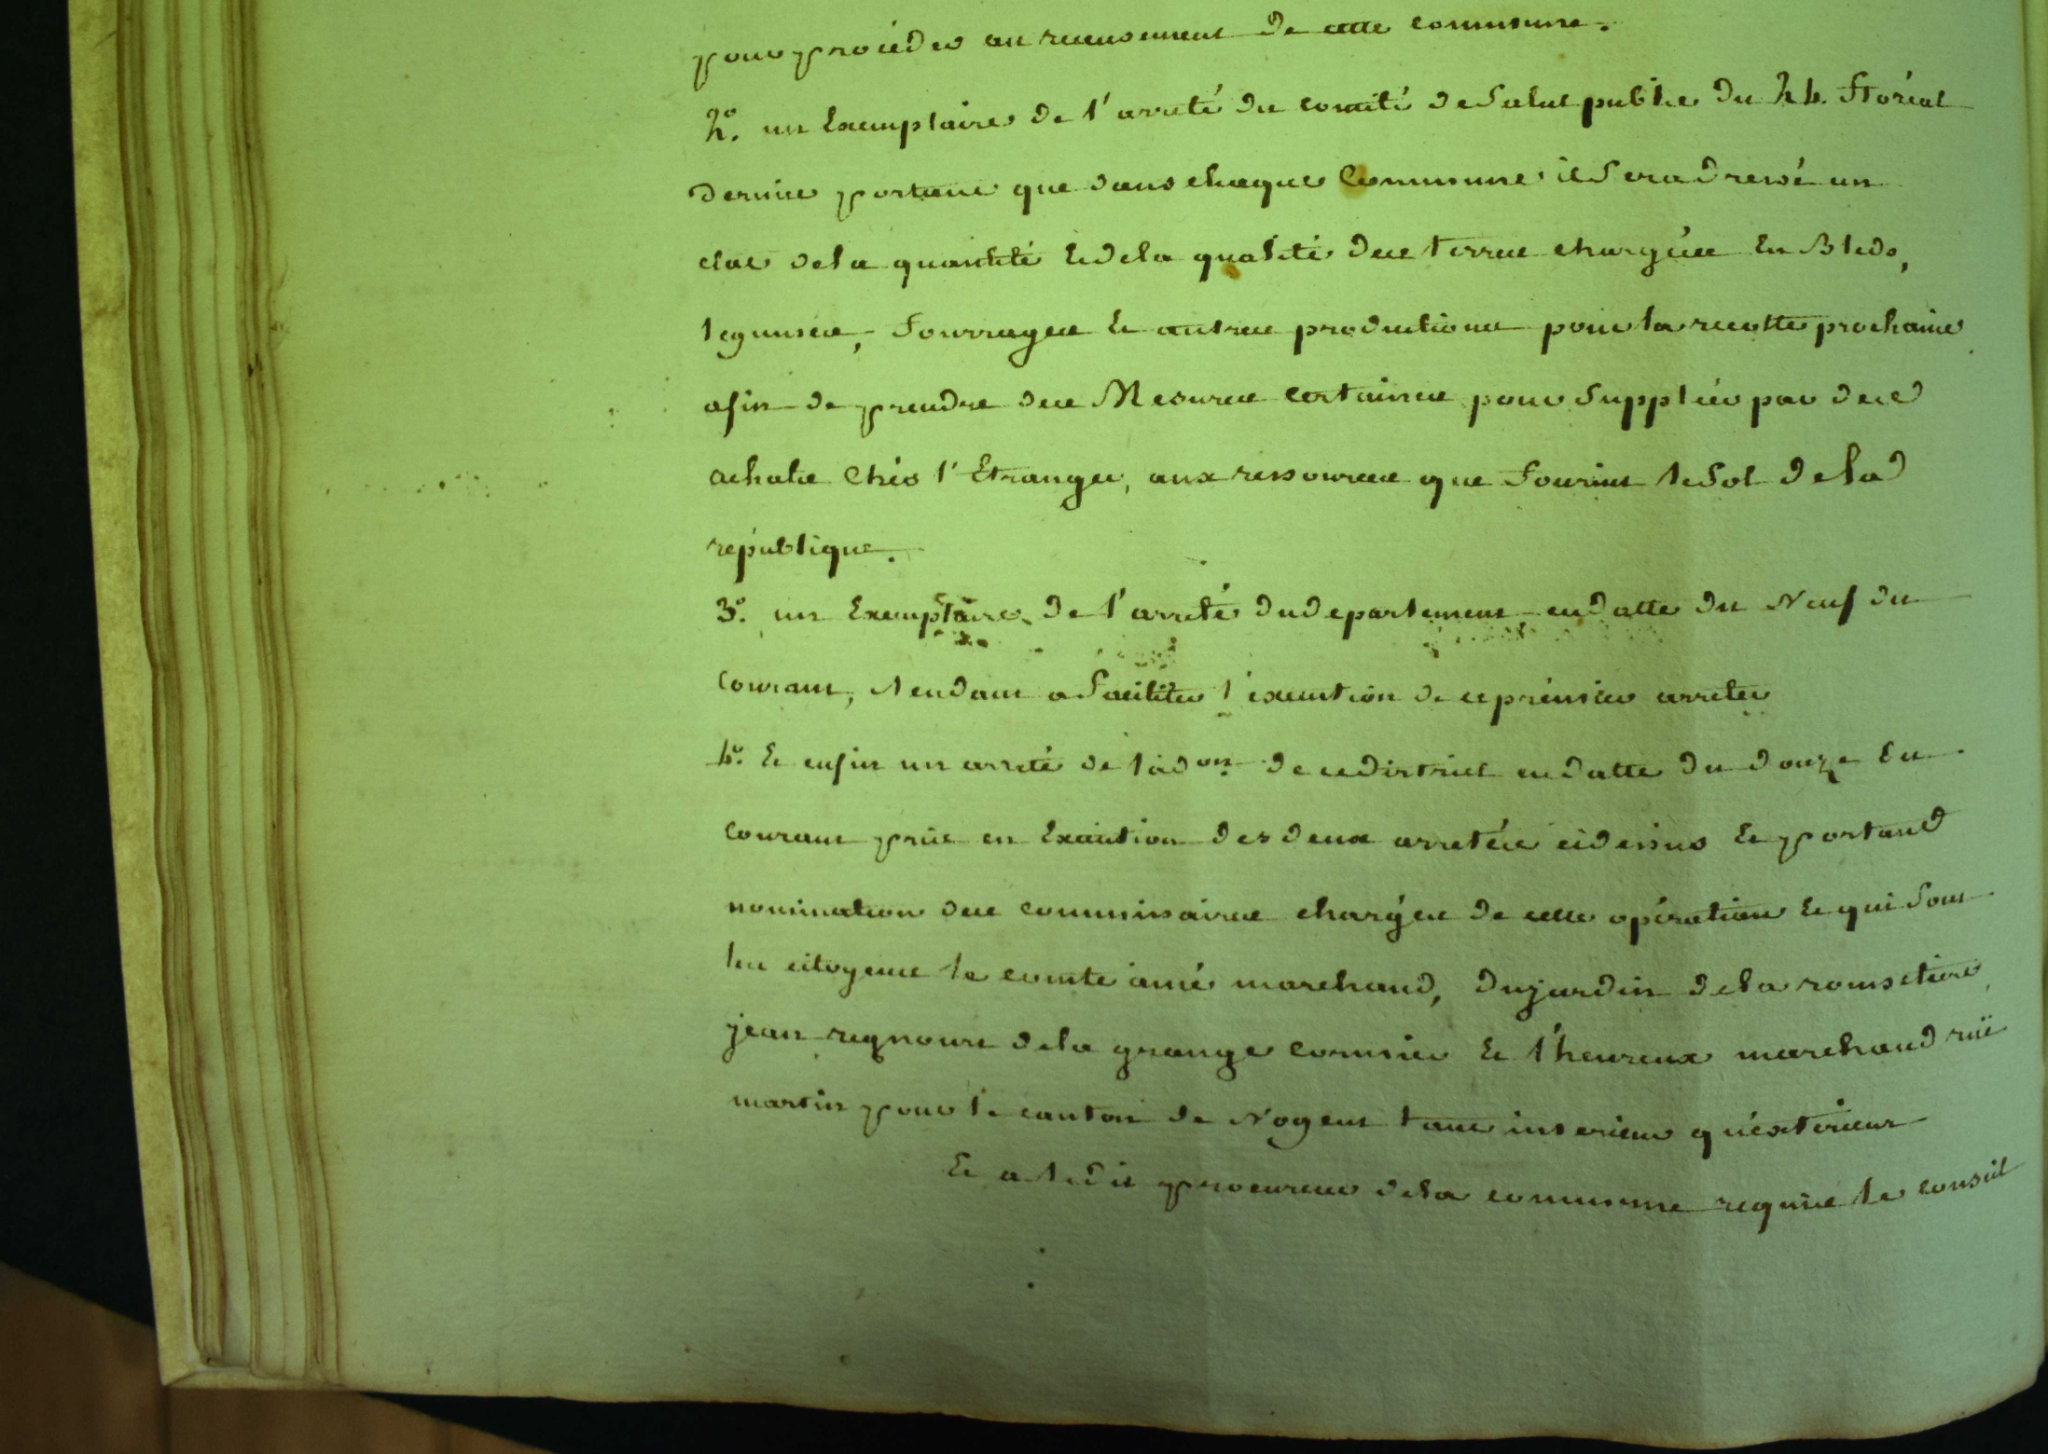 pour procéder au recensement de cette commune.
2.° un Exemplaire de l'arreté du comité de Salut public du 24. Floréal
dernier portant que dans chaque Commune il Sera dressé un
etat de la quantité & de la qualité des terres chargées En Bleds,
legumes, fourrages & autres productions pour la recolte prochaine
afin de prendre des Mesures certaines pour Suppléer par des
achats Chés l'Etranger, aux ressources que fournit le Sol de la
république.
3.° un Exemplaire de l'arreté du departement en datte du Neuf du
Courant, tendant a faciliter l'execution de ce prémier arreter
4.° & enfin un arreté de l'adon de ce district en datte du douze du
Courant pris en Exécution des deux arretés cidessus & portand
nomination des commissaires chargés de cette opération & qui Sont
les citoyens le comte ainé marchand, dujardin de la
jean regnoust de la grange cormier & l'heureux marchand rüe
martin pour le canton de Nogent tant interieur qu'éxterieur
& a ledit procureur de la commune requis le conseil